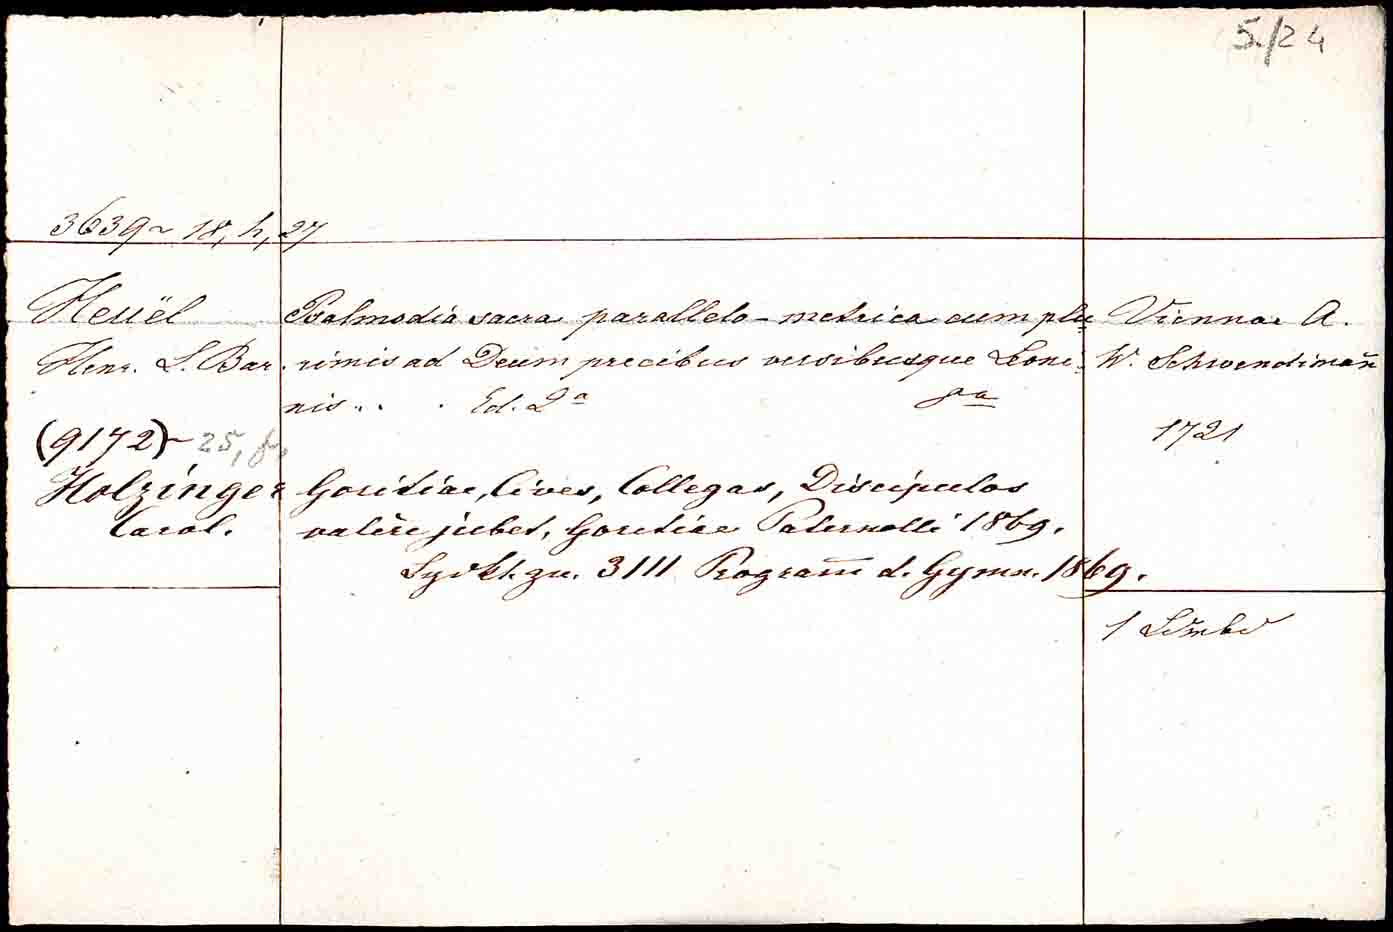 5./24
3639~ 18, h, 27
Heüël Psalmodia sacra parallelo-metrica cum plu Viennae A.
Henr. L. Bar. rimis ad Deum precibus versibusque Leoni- W. Schwendimañ
nis . . . Ed. 2a 8a
1721
(9172)~ 25, f,
Holzinger Goritiae, Cives, Collegas, Discipulos
Carol. valere jubet, Goritiae Paternolli 1869.
3111 Program̅ d. Gymn. 1869.
1